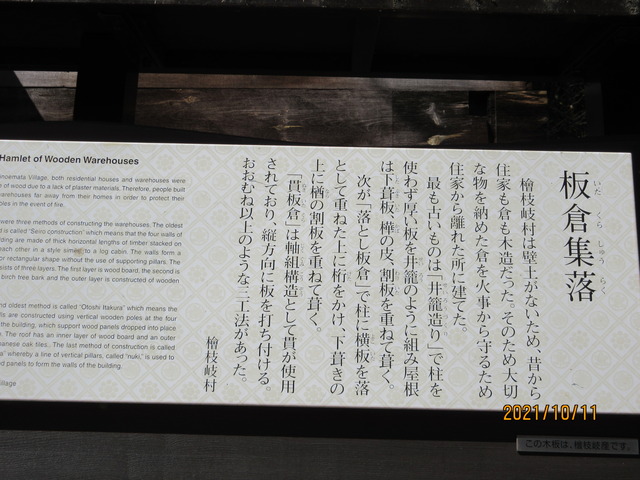 板倉集落
いた くら しゅう らく
檜枝岐村は壁土がないため、昔から
住家も倉も木造だった。そのため大切
な物を納めた倉を火事から守るため
住家から離れた所に建てた。
最も古いものは「井籠造り」で柱を
使わず厚い板を井籠のように組み屋根
は下葺板、樺の皮、割板を重ねて葺く。
次が「落とし板倉」で柱に横板を落
として重ねた上に桁をかけ、下葺きの
上に楢の割板を重ねて葺く。
「貫板倉」は軸組構造として貫が使用
されており、縦方向に板を打ち付ける。
おおむね以上のような三工法があった。
檜枝岐村
Hamlet of Wooden Warehouses
inoemata Village, both residential houses and warehouses were
of wood due to a lack of plaster materials. Therefore, people built
warehouses far away from their homes in order to protect their
bles in the event of fire.
were three methods of constructing the warehouses. The oldest
d is called "Seiro construction" which means that the four walls of
lding are made of thick horizontal lengths of timber stacked on
each other in a style similar to a log cabin. The walls form a
or rectangular shape without the use of supporting pillars. The
sists of three layers. The first layer is wood board, the second is
birch tree bark and the outer layer is constructed of wooden
nd oldest method is called "Otoshi Itakura" which means the
lls are constructed using vertical wooden poles at the four
the building, which support wood panels dropped into place
. The roof has an inner layer of wood board and an outer
panese oak tiles. The last method of construction is called
a" whereby a line of vertical pillars, called "nuki", is used to
d panels to form the walls of the building.
illage
この木板は、檜枝岐産です。
2021/10/11